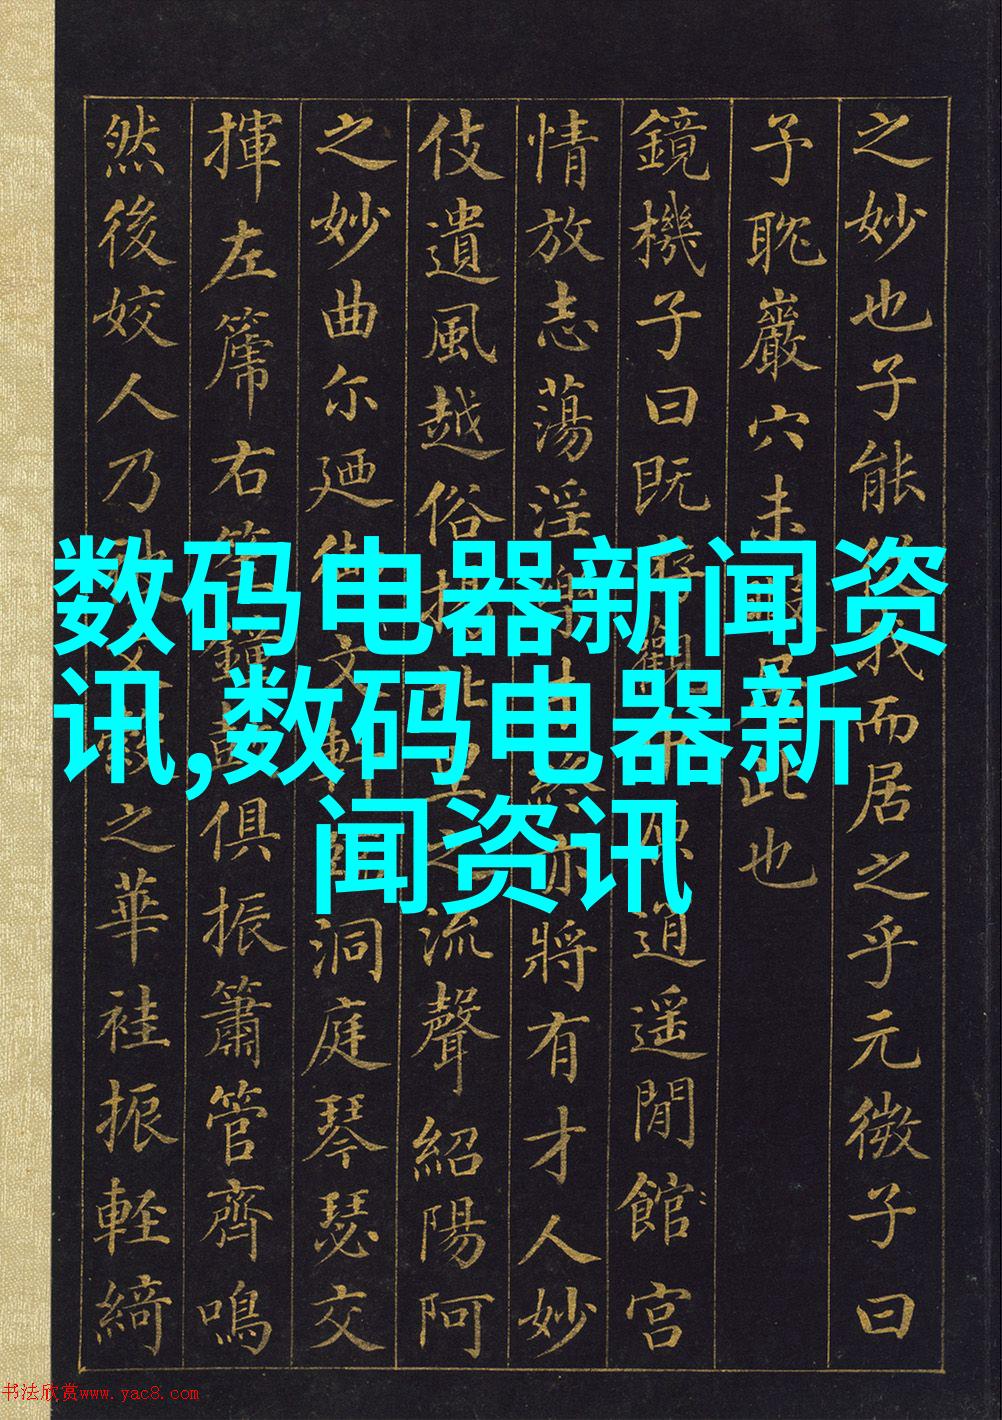 之妙也子能從我而居之乎元微子曰
予耽巖穴未暇此也
鏡機子曰既觀逍遥閒館宫
情放志蕩淫終亦將有才人妙
伎遺風越俗揚北里之流聲紹陽阿
之妙曲尔廼御文軒洞庭琴瑟交
揮左篪右笙鍾鼓俱振簫管齊鳴
然後姣人乃被文縠之華袿振輕綺
数码电器新闻资
讯,数码电器新
闻资讯
书法欣赏www.yac8.com